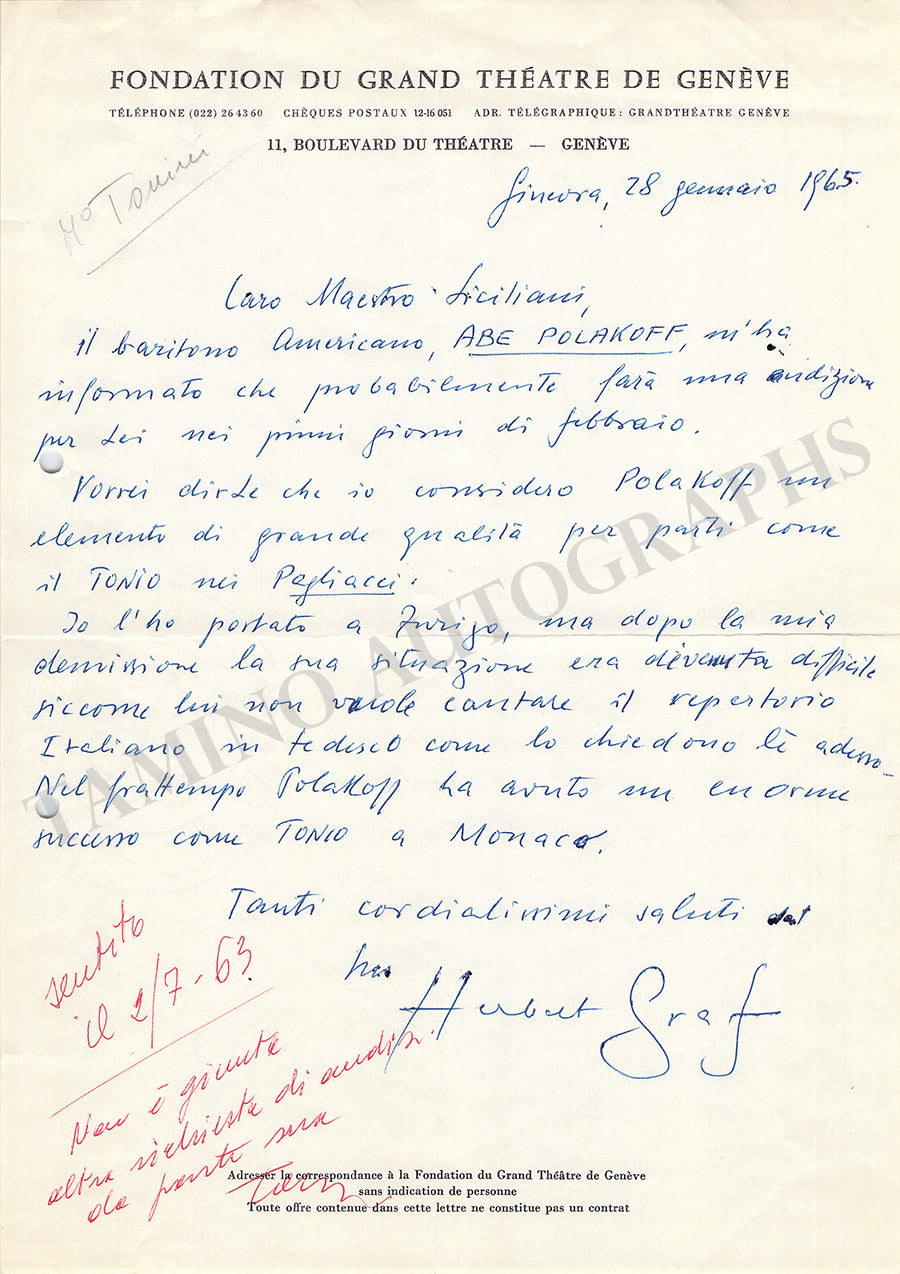 FONDATION DU GRAND THÉATRE DE GENÈVE
TÉLÉPHONE (022) 26 43 60 CHÈQUES POSTAUX 12-16 051 ADR. TÉLÉGRAPHIQUE: GRANDTHÉATRE GENÈVE
11, BOULEVARD DU THÉATRE — GENÈVE
Mo Tonini
Ginevra, 28 gennaio 1965.
Caro Maestro Siciliani,
il baritono Americano, ABE POLAKOFF, m'ha
informato che probabilmente farà una audizione
per Lei nei primi giorni di febbraio.
Vorrei dirLe che io considero Polakoff un
elemento di grande qualità per parti come
il TONIO nei Pagliacci.
Io l'ho portato a Zurigo, ma dopo la mia
demissione la sua situazione era divenuta difficile
siccome lui non vuole cantare il repertorio
Italiano in tedesco come lo chiedono lì adesso.
Nel frattempo Polakoff ha avuto un enorme
successo come TONIO a Monaco.
Tanti cordialissimi saluti dal
Herbert Graf
sentito
il 2/7-63
Non è giunta
altra richiesta di audiz.
da parte sua
Adresser la correspondance à la Fondation du Grand Théâtre de Genève
sans indication de personne
Toute offre contenue dans cette lettre ne constitue pas un contrat
TAMINO AUTOGRAPHS